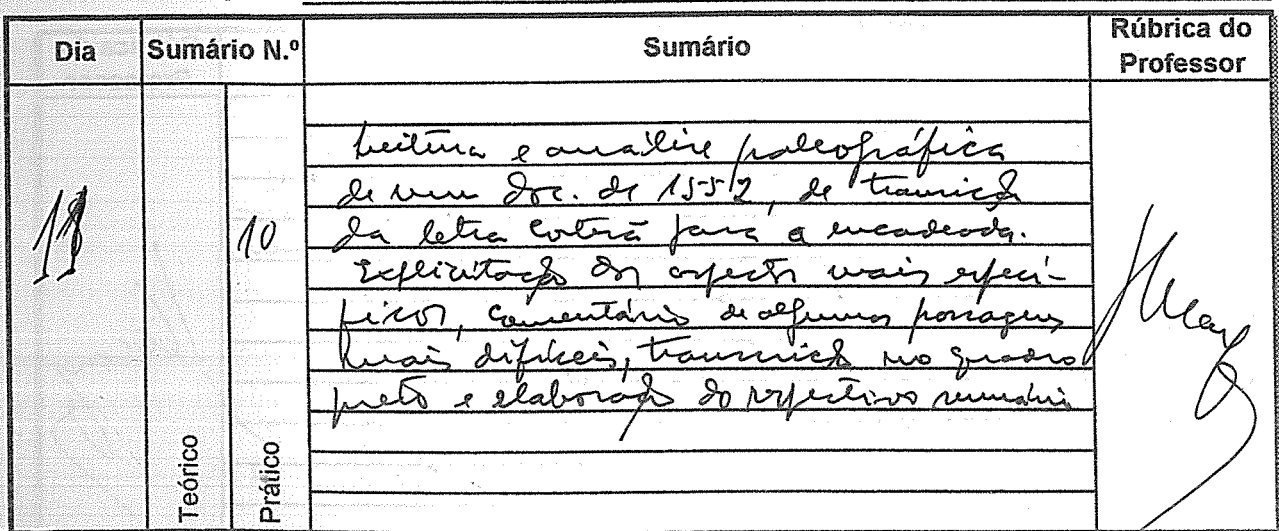 Dia Sumário N.º Sumário Rúbrica do Professor
Leitura e análise paleográfica
de um doc. de 1552, de transição
da letra cortesã para a encadeada.
Explicitação dos aspectos mais especí-
ficos, comentário de algumas passagens
mais difíceis, transcrição no quadro
preto e elaboração do respectivo sumário
10
Teórico
Prático